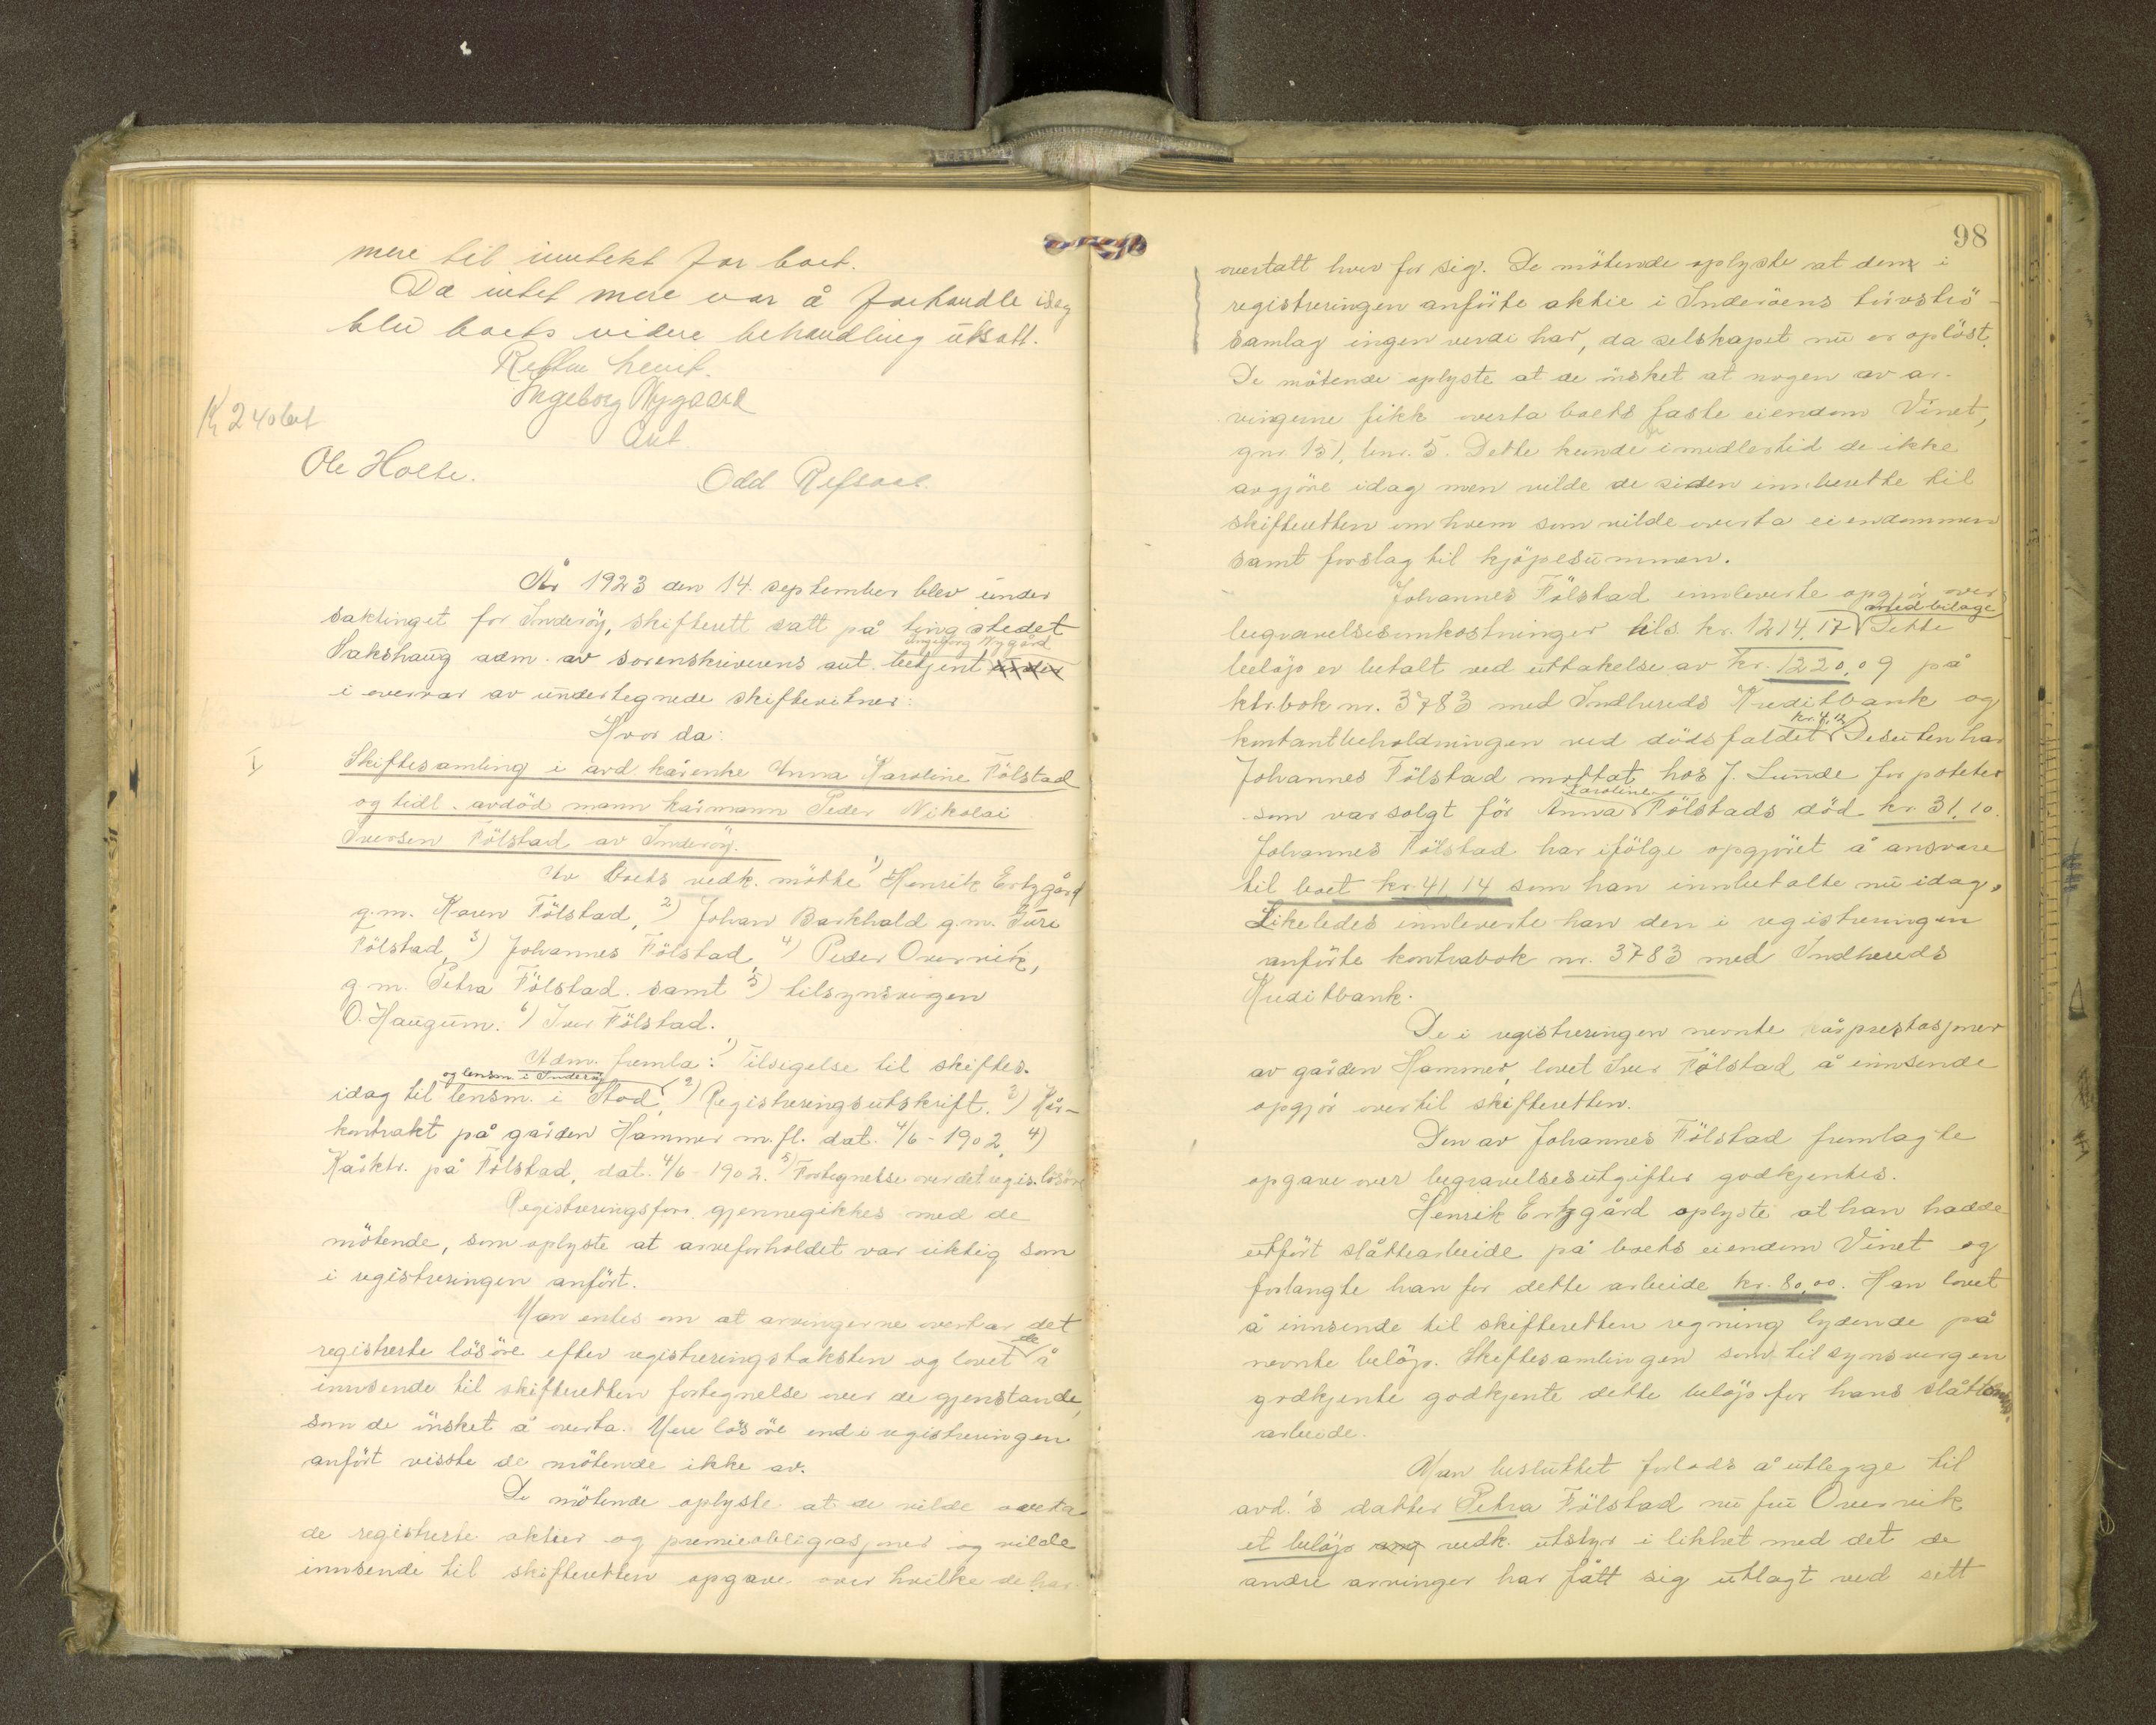 mere til inntekt for boet.
Da intet mere var å forhandle idag
blev boets videre behandling utsatt.
Retten hevet.
Ingeborg Nygaard
Aut.
Kr 2 40 bet
Ole Holte.
Odd Refsaas.
År 1923 den 14. september blev under
saktinget for Inderöy, skifterett satt på tingstedet
Ingeborg Nygård
Sakshaug adm. av sorenskriverens aut. betjent
i overvær av undertegnede skiftevitner:
Hvor da:
I,
Skiftesamling i avd kårenke Anna Karoline Fölstad
og tidl. avdöd mann kårmann Peder Nikolai
Iversen Fölstad av Inderöy.
Av boets vedk. mötte 1) Henrik Ertzgård
g.m. Karen Fölstad, 2) Johan Barkhald g.m. Guri
Fölstad, 3) Johannes Fölstad, 4) Peder Overvik,
g.m. Petra Fölstad. samt 5) tilsynsvergen
O. Haugum. 6) Iver Fölstad.
Adm. fremla: 1) Tilsigelse til skiftes.
og lensm. i Inderöy
idag til lensm. i Stod, 2) Registreringsutskrift. 3) Kår-
kontrakt på gården Hammer m.fl. dat. 4/6 - 1902, 4)
Kårktr. på Fölstad, dat. 4/6 - 1902. 5) Fortegnelse over det regis. lösöre
Registreringsforr. gjennegikkes med de
mötende, som oplyste at arveforholdet var riktig som
i registreringen anfört.
Man entes om at arvingerne overtar det
de
registrerte lösöre efter registreringstaksten og lovet å
innsende til skifteretten fortegnelse over de gjenstande,
som de önsket å overta. Mere lösöre end i registreringen
anfört visste de mötende ikke av.
De mötende oplyste at de vilde overta
de registrerte aktier og premieobligasjoner og vilde
innsende til skifteretten opgave over hvilke de har
98
overtatt hver for sig. De mötende oplyste at den i
registreringen anförte aktie i Inderöens torvströ-
samlag ingen verdi har, da selskapet nu er oplöst.
De mötende oplyste at de önsket at nogen av ar-
vingerne fikk overta boets faste eiendom Vinet,
gnr 151, bnr. 5. Dette kunde imidlertid de ikke
avgjöre idag men vilde de siden innberette til
skifteretten om hvem som vilde overta eiendommen
samt forslag til kjöpesummen.
Johannes Fölstad innleverte opgjör over
med bilage
begravelsesomkostninger tils. kr. 1214,17 Dette
belöp er betalt ved uttakelse av kr. 1220,09 på
ktr.bok nr. 3783 med Indhereds Kreditbank og
kr. 4,12
kontantbeholdningen ved dödsfaldet Desuten har
Johannes Fölstad mottat hos J. Lunde for poteter
Karoline
som var solgt för Anna Fölstads död kr 31,10.
Johannes Fölstad har ifölge opgjöret å ansvare
til boet kr. 41 14 som han innbetalte nu idag.
Likeledes innleverte han den i registreringen
anförte kontrabok nr. 3783 med Indhereds
Kreditbank.
De i registreringen nevnte kårprestasjoner
av gården Hammer, lovet Iver Fölstad å innsende
opgjör over til skifteretten.
Den av Johannes Fölstad fremlagte
opgave over begravelsesutgifter godkjentes.
Henrik Ertzgård oplyste at han hadde
utfört slåttearbeide på boets eiendom Vinet og
forlangte han for dette arbeide kr. 80,00. Han lovet
å innsende til skifteretten regning lydende på
nevnte belöp. Skiftesamlingen som tilsynsvergen
godkjente godkjente dette belöp for hans slått
arbeide.
Man besluttet forlods å utlegge til
avd.'s datter Petra Fölstad nu fru Overvik
et belöp vedk. utstyr i likhet med det de
andre arvinger har fått sig utlagt ved sett